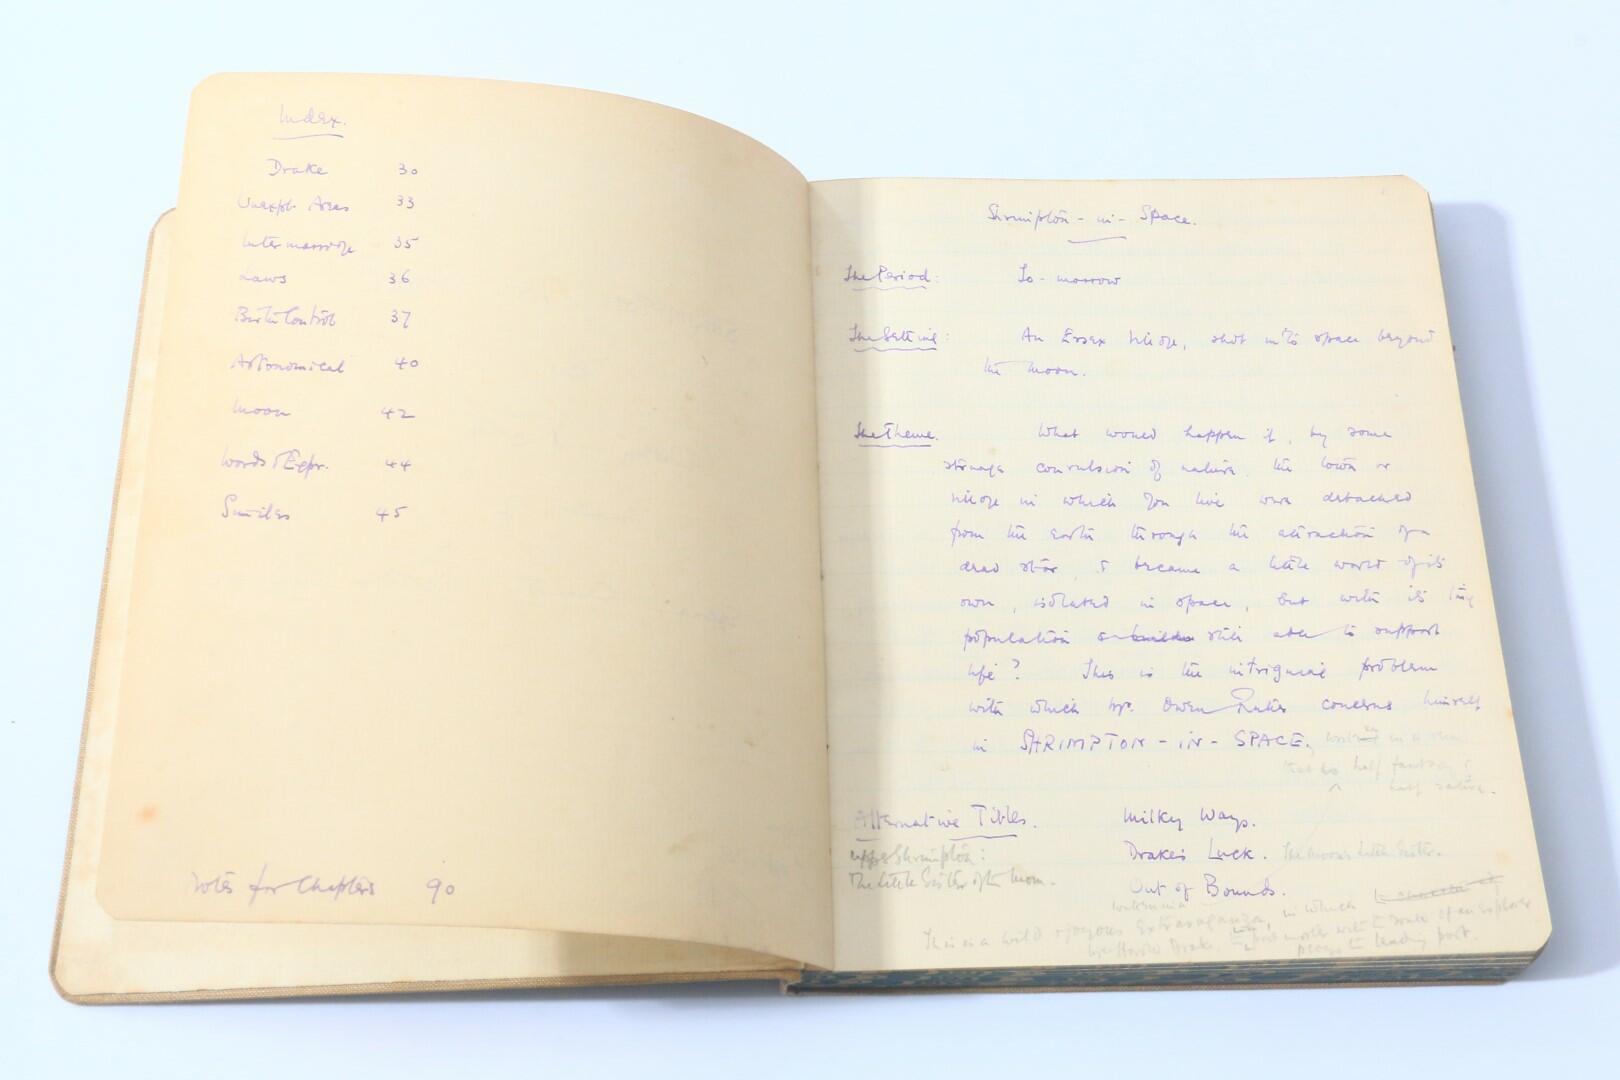 Index.
Drake 30
Unexpl. Areas 33
Intermarriage 35
Laws 36
Birth Control 37
Astronomical 40
Moon 42
Words & Expr. 44
Similes 45
Notes for Chapters 90
Shrimpton-in-Space.
The Period: To-morrow
The Setting: An Essex village, shot into space beyond
the moon.
The Theme. What would happen if, by some
strange convulsion of nature, the town or
village in which you live were detached
from the earth through the attraction of a
dead star, & became a little world of its
own, isolated in space, but with its tiny
population still able to support
life? This is the intriguing problem
with which Mr. Owen Rutter concerns himself
in SHRIMPTON-IN-SPACE,
that is half fantasy &
half satire.
Alternative Titles. Milky Ways.
Upper Shrimpton: Drake's Luck. The Moon's Little Sister.
The Little Sister of the Moon. Out of Bounds.
This is a wild & joyous extravaganza, in which
Drake, with the soul of an explorer
plays the leading part.